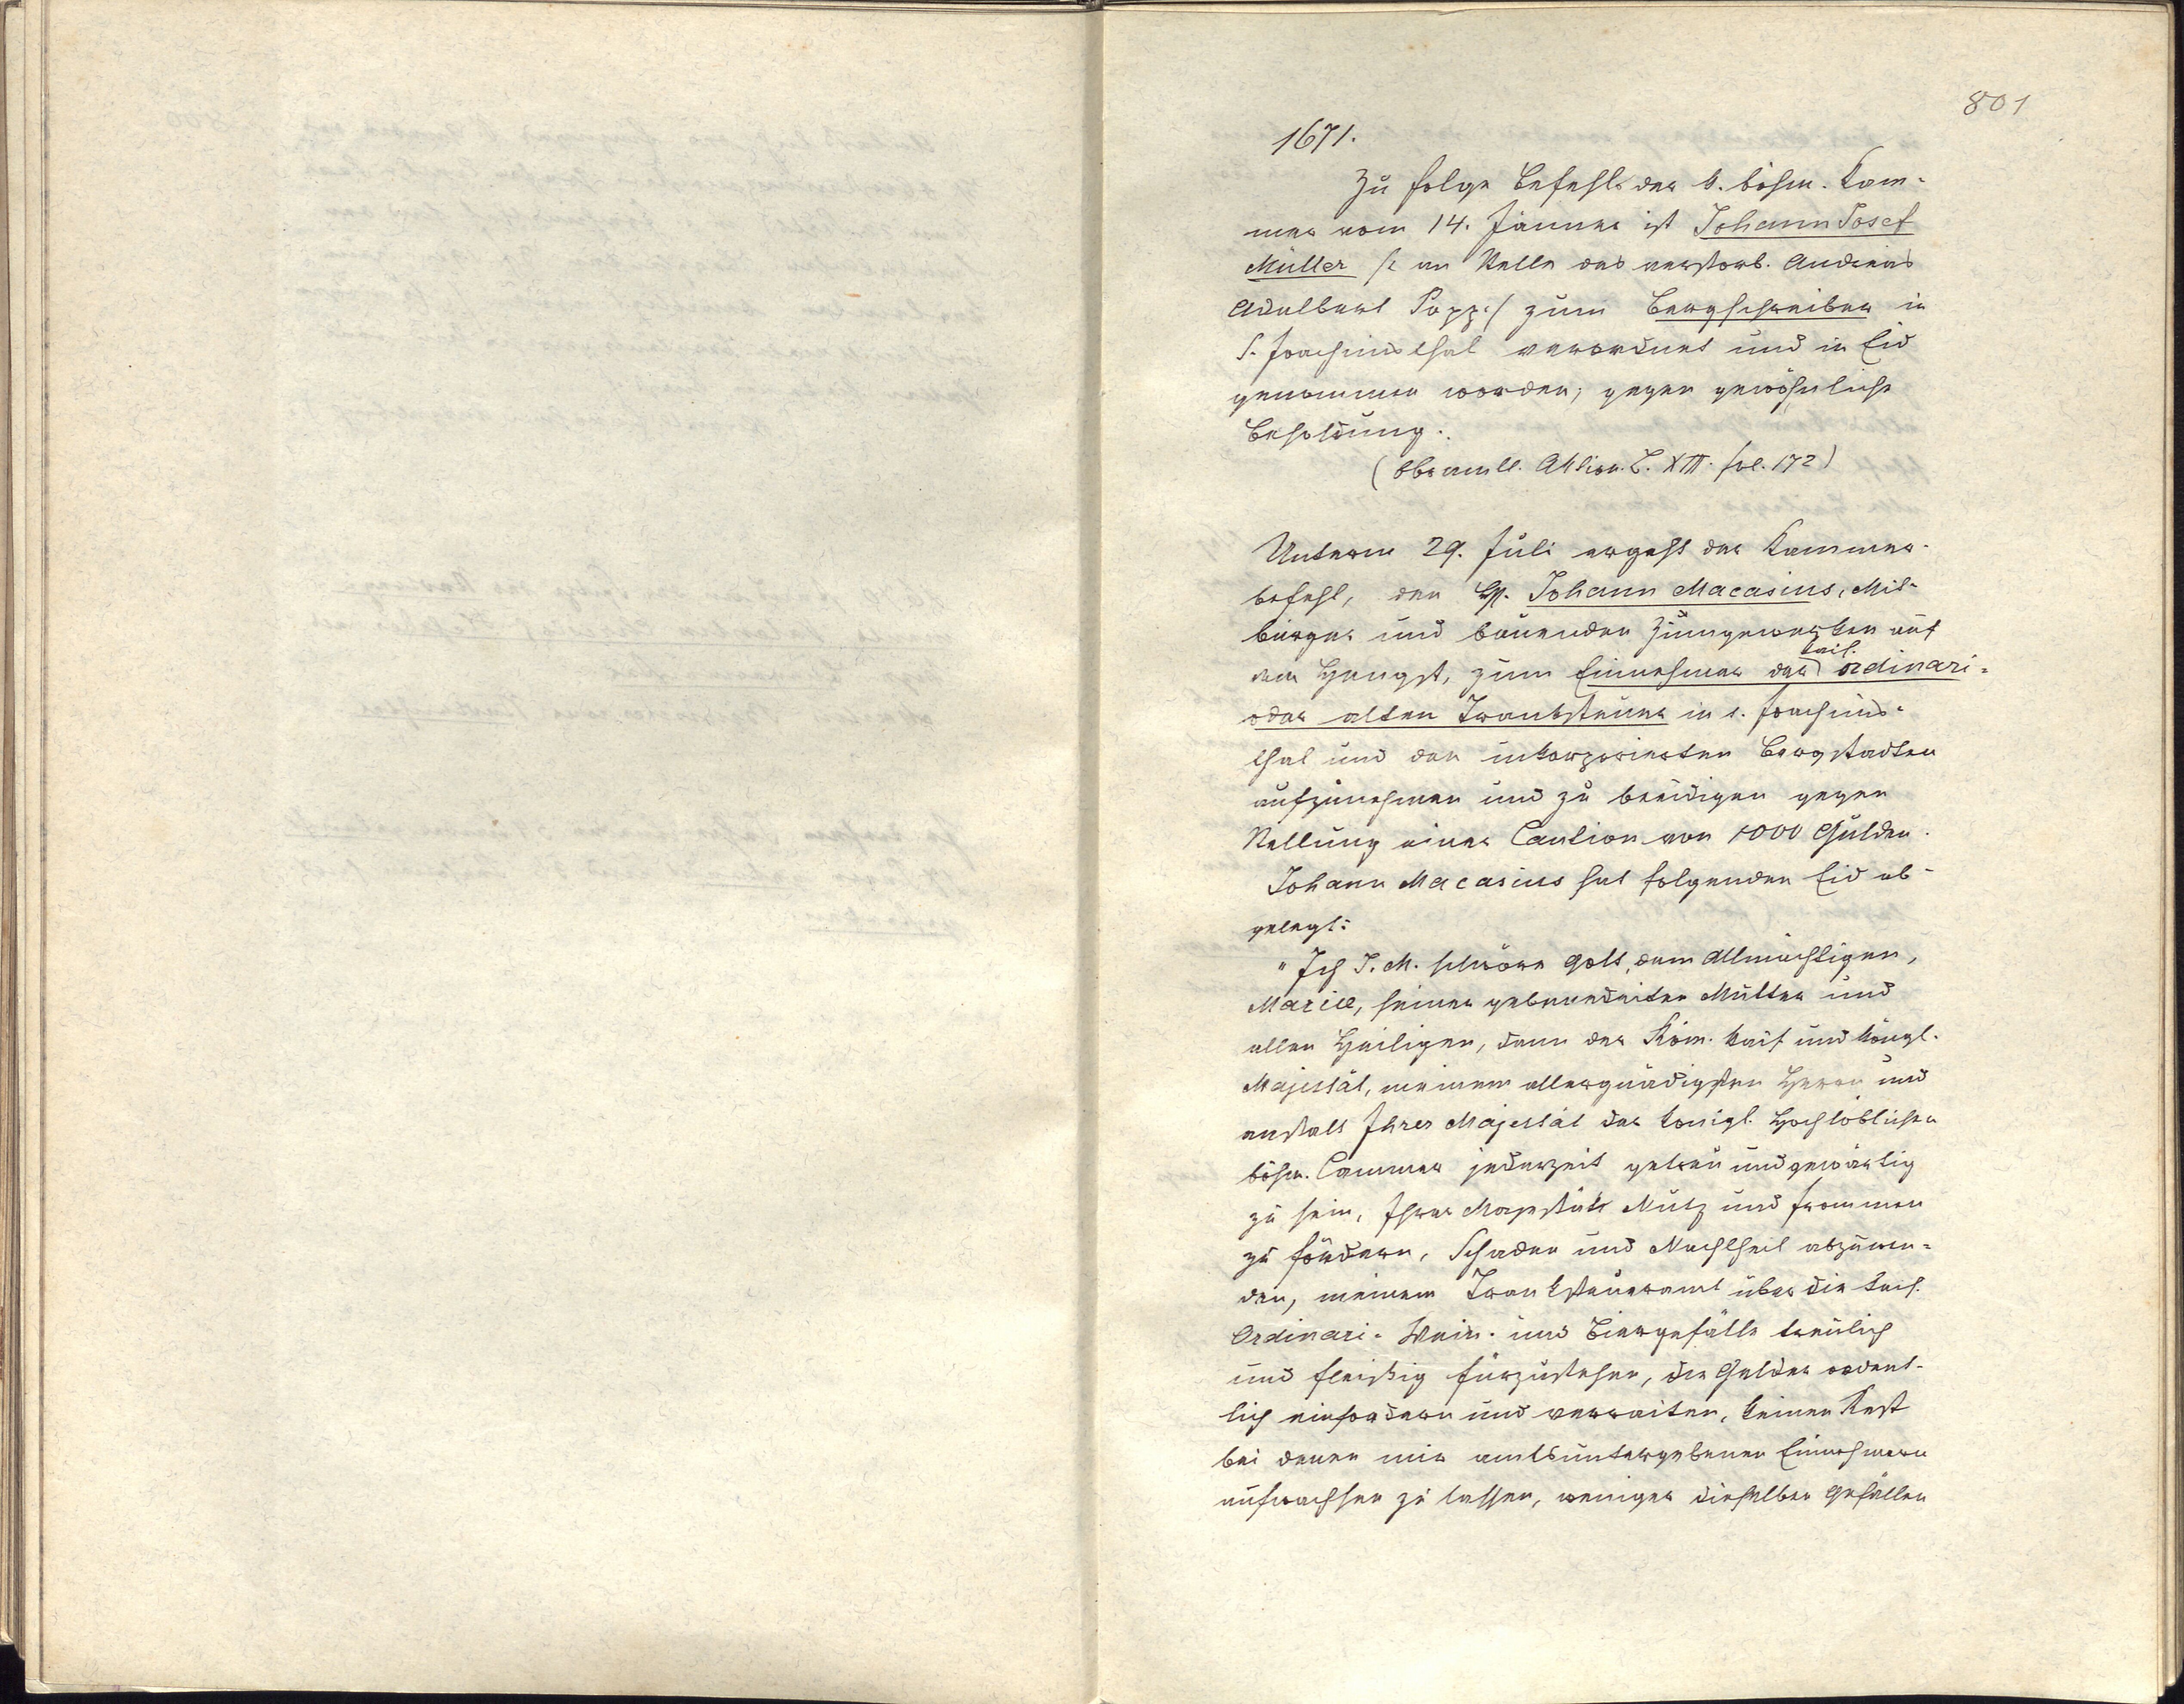 801
1671.
Zu folge Befehls der k. böhm. Kam-
mer vom 14. Jänner ist Johann Josef
Müller /: an Stelle des verstorb. Andreas
Adalbert Popp :/ zum Bergschreiber in
S. Joachimsthal verordnet und in Eid
genommen worden, gegen gewöhnliche
Besoldung.
(Oberamtl. Aktion. L. XIII. fol. 172)
Unterm 29. Juli ergeht der Kammer-
befehl, den H. Johann Macasius, Mit-
bürger und bauenden Zinngewerken auf
dem Hengst, zum Einnehmer der kais. ordinari-
oder alten Tranksteuer in S. Joachims-
thal und den inkorporierten Bergstädten
aufzunehmen und zu beeidigen gegen
Stellung einer Caution von 1000 Gulden.
Johann Macasius hat folgenden Eid ab-
gelegt:
"Ich J. M. schwöre Gott, dem Allmächtigen,
Mariae, seiner gebenedeiten Mutter und
allen Heiligen, dann der Röm. kais und köngl.
Majestät, meinem allergnädigsten Herrn und
anstatt Ihrer Majestät der königl. Hochlöblichen
böhm. Cammer jederzeit getreu und gewärtig
zu sein, Ihrer Majestät Nutz und Frommen
zu fördern, Schaden und Nachtheil abzuwen-
den, meinem Tranksteueramt über die kais.
Ordinari- Wein- und Biergefälle treulich
und fleißig fürzustehen, die Gelder ordent-
lich einfordern und verraiten, keinen Rest
bei denen mir amtsuntergebenen Einnehmern
aufwachsen zu lassen, weniger dieselben Gefällen